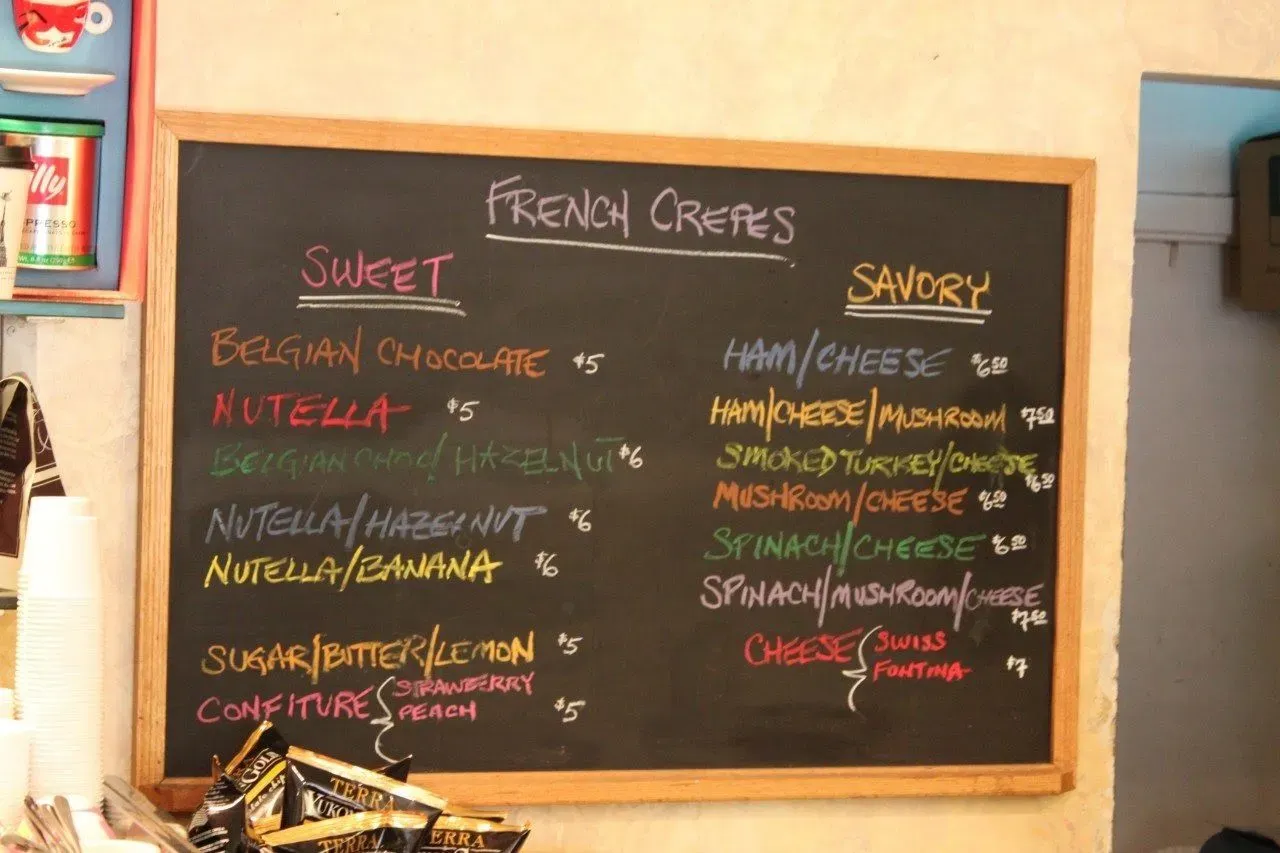 FRENCH CREPES
SWEET
BELGIAN CHOCOLATE $5
NUTELLA $5
BELGIAN CHOC/HAZELNUT $6
NUTELLA/HAZELNUT $6
NUTELLA/BANANA $6
SUGAR/BITTER/LEMON $5
CONFITURE { STRAWBERRY
PEACH $5
SAVORY
HAM/CHEESE $6.50
HAM/CHEESE/MUSHROOM $7.50
SMOKED TURKEY/CHEESE
$6.50
MUSHROOM/CHEESE $6.50
SPINACH/CHEESE $6.50
SPINACH/MUSHROOM/CHEESE
$7.50
CHEESE { SWISS
FONTINA $7
illy
TERRA
YUKON
TERRA
ERRA
GOLD